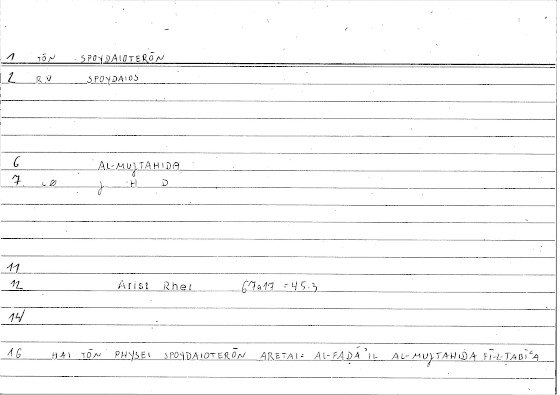 1 TŌN SPOYDAIOTERŌN
2 RV SPOYDAIOS
6 AL-MUJTAHIDA
7 LØ J H D
11
12 Arist Rhet 67a17 = 45.3
14
16 HAI TŌN PHYSEI SPOYDAIOTERŌN ARETAI = AL-FAḌĀʾIL AL-MUJTAHIDA FĪ-L-ṬABĪʿA